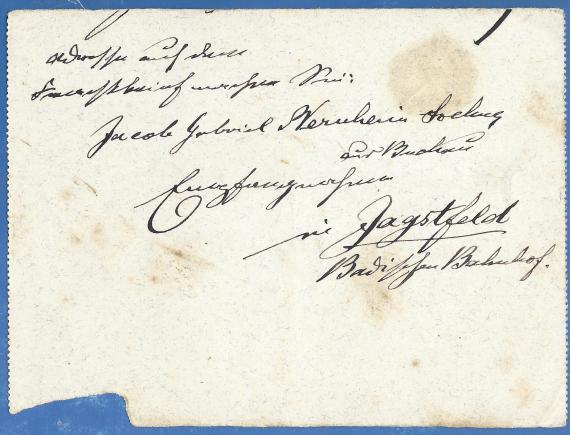 adresse auf dem
Frachtbrief machen Sie:
Jacob Gabriel Wernheim
aus Buchau
Empfangnehmer
in Jagstfeld
Badischen Bahnhof.